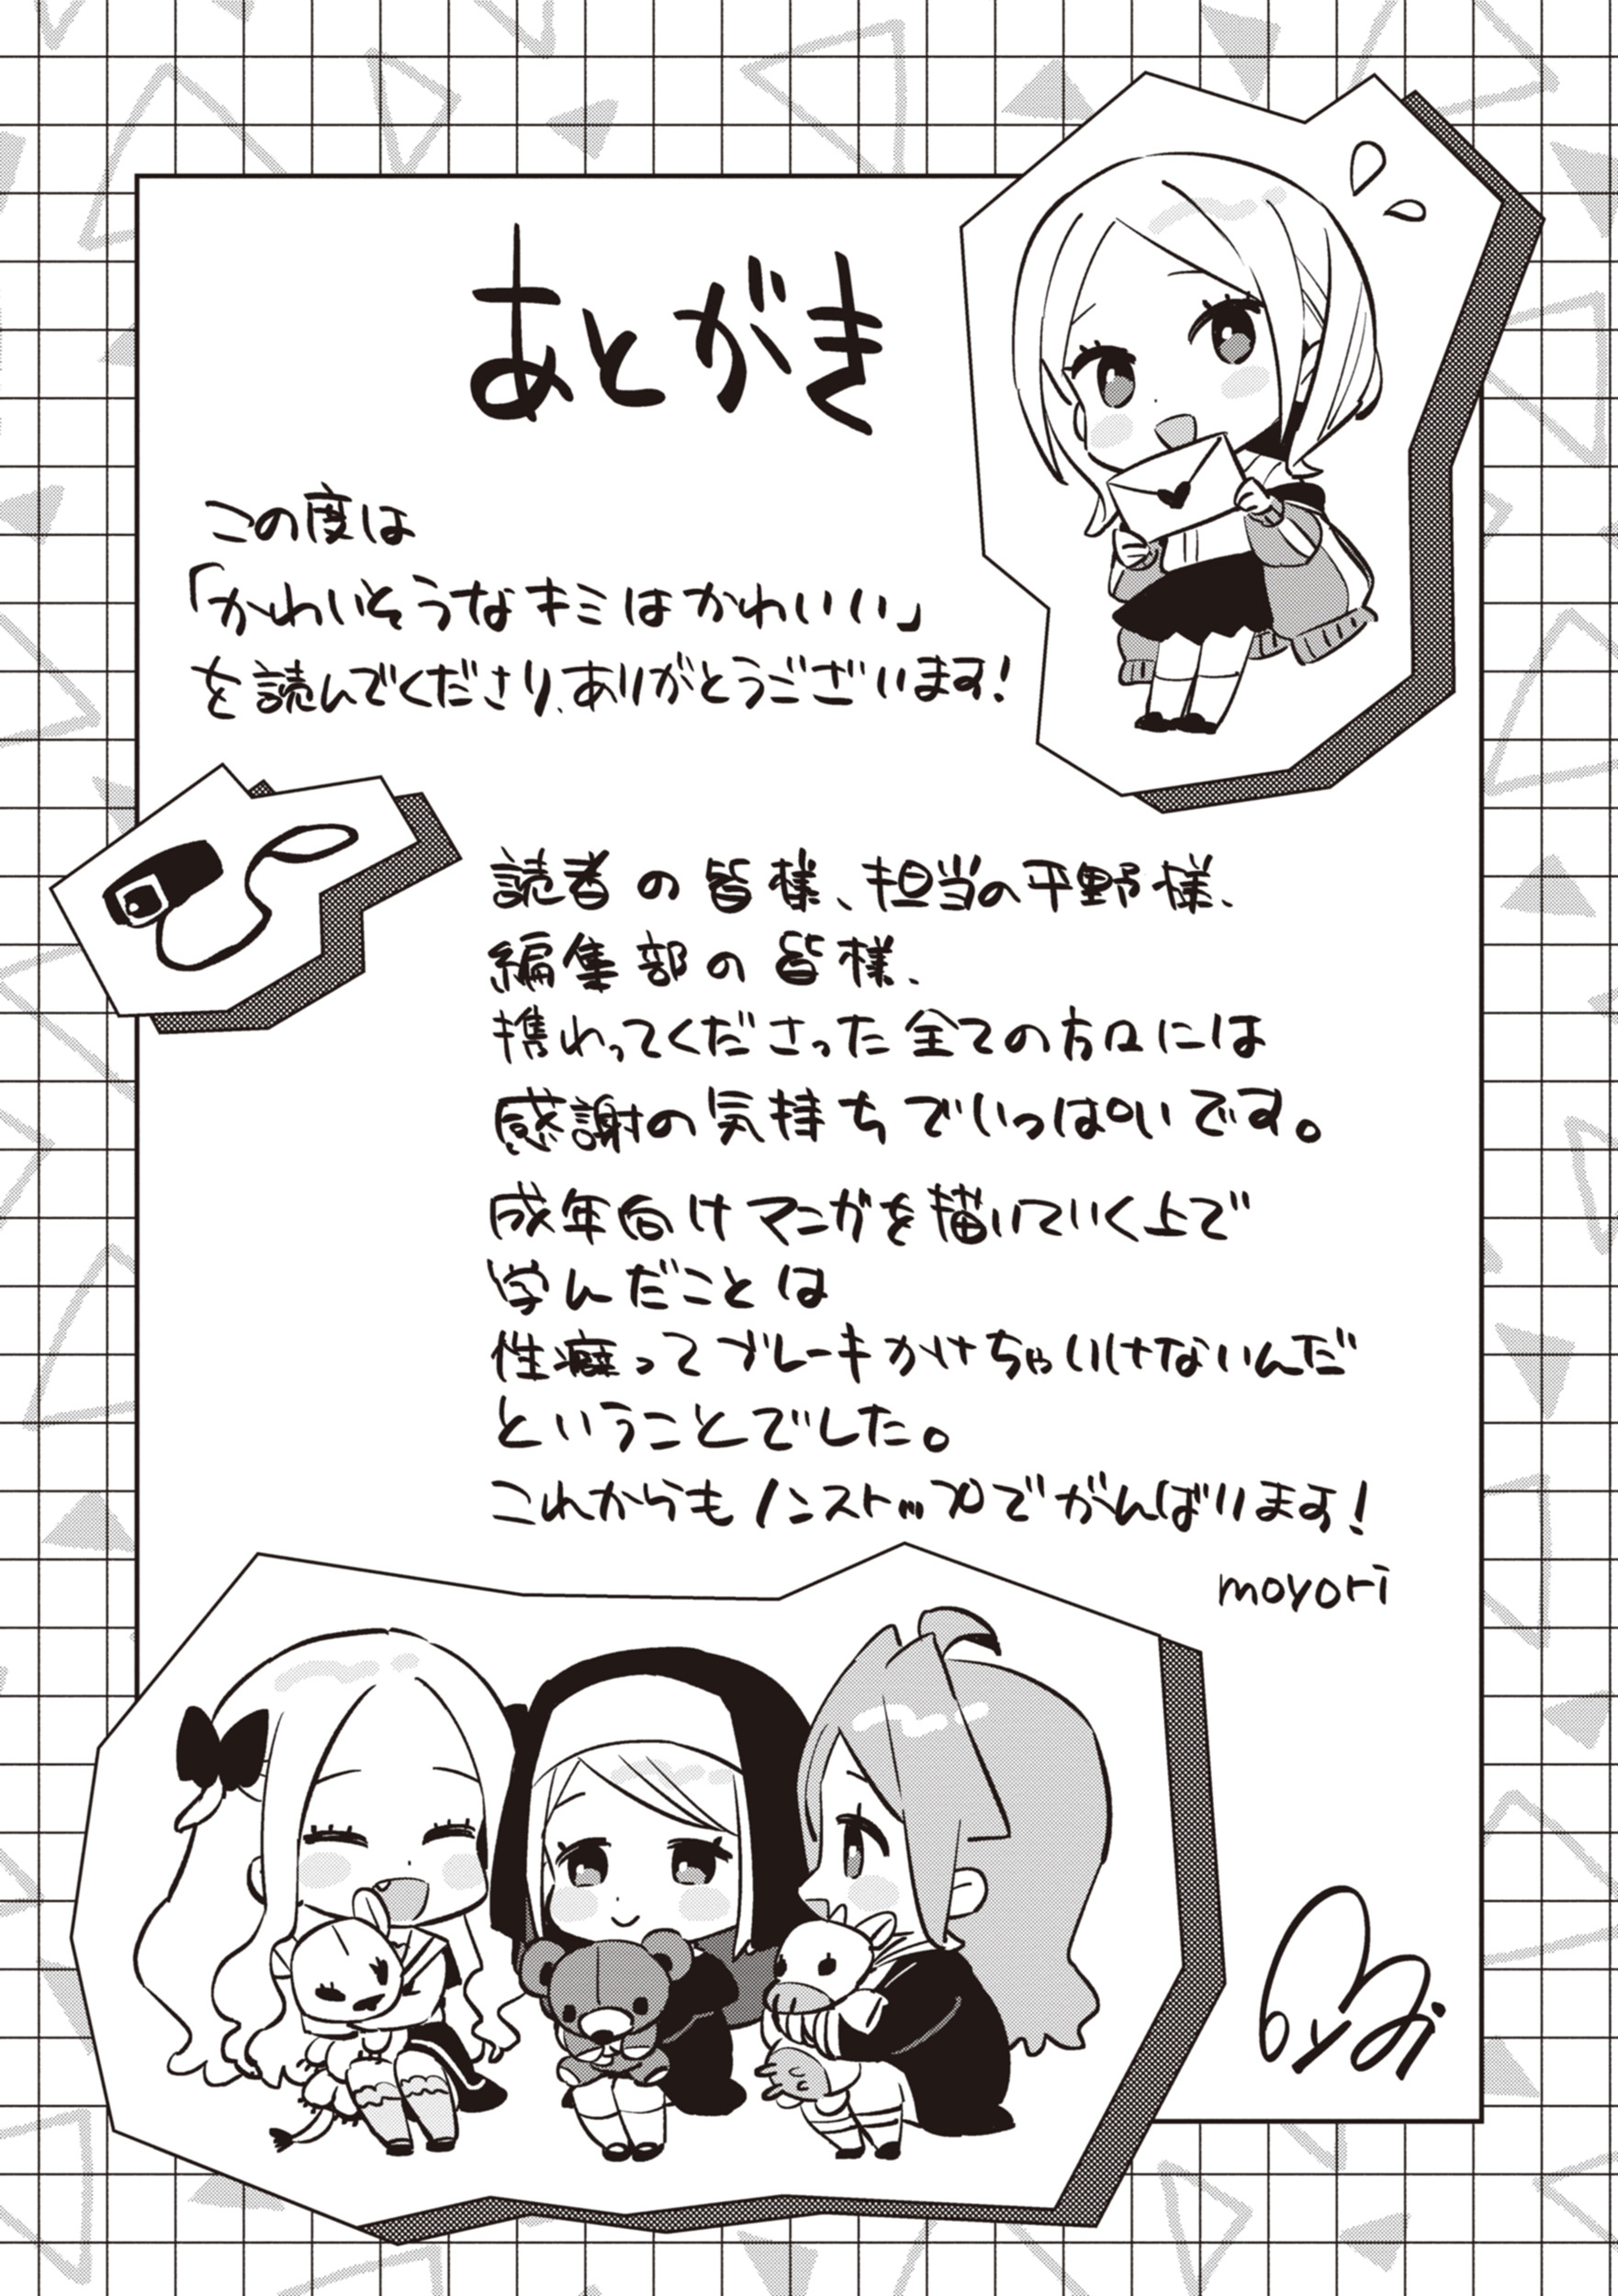 あとがき
この度は
「かわいそうなキミはかわいい」
を読んでくださり、ありがとうございます!
読者の皆様、担当の平野様、
編集部の皆様、
携わってくださった全ての方々には
感謝の気持ちでいっぱいです。
成年向けマンガを描いていく上で
学んだことは
性癖ってブレーキかけちゃいけないんだ
ということでした。
これからもノンストップでがんばります!
moyori